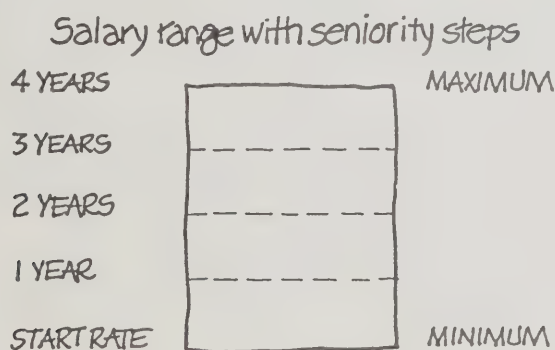 Salary range with seniority steps
4 YEARS MAXIMUM
3 YEARS
2 YEARS
1 YEAR
START RATE MINIMUM